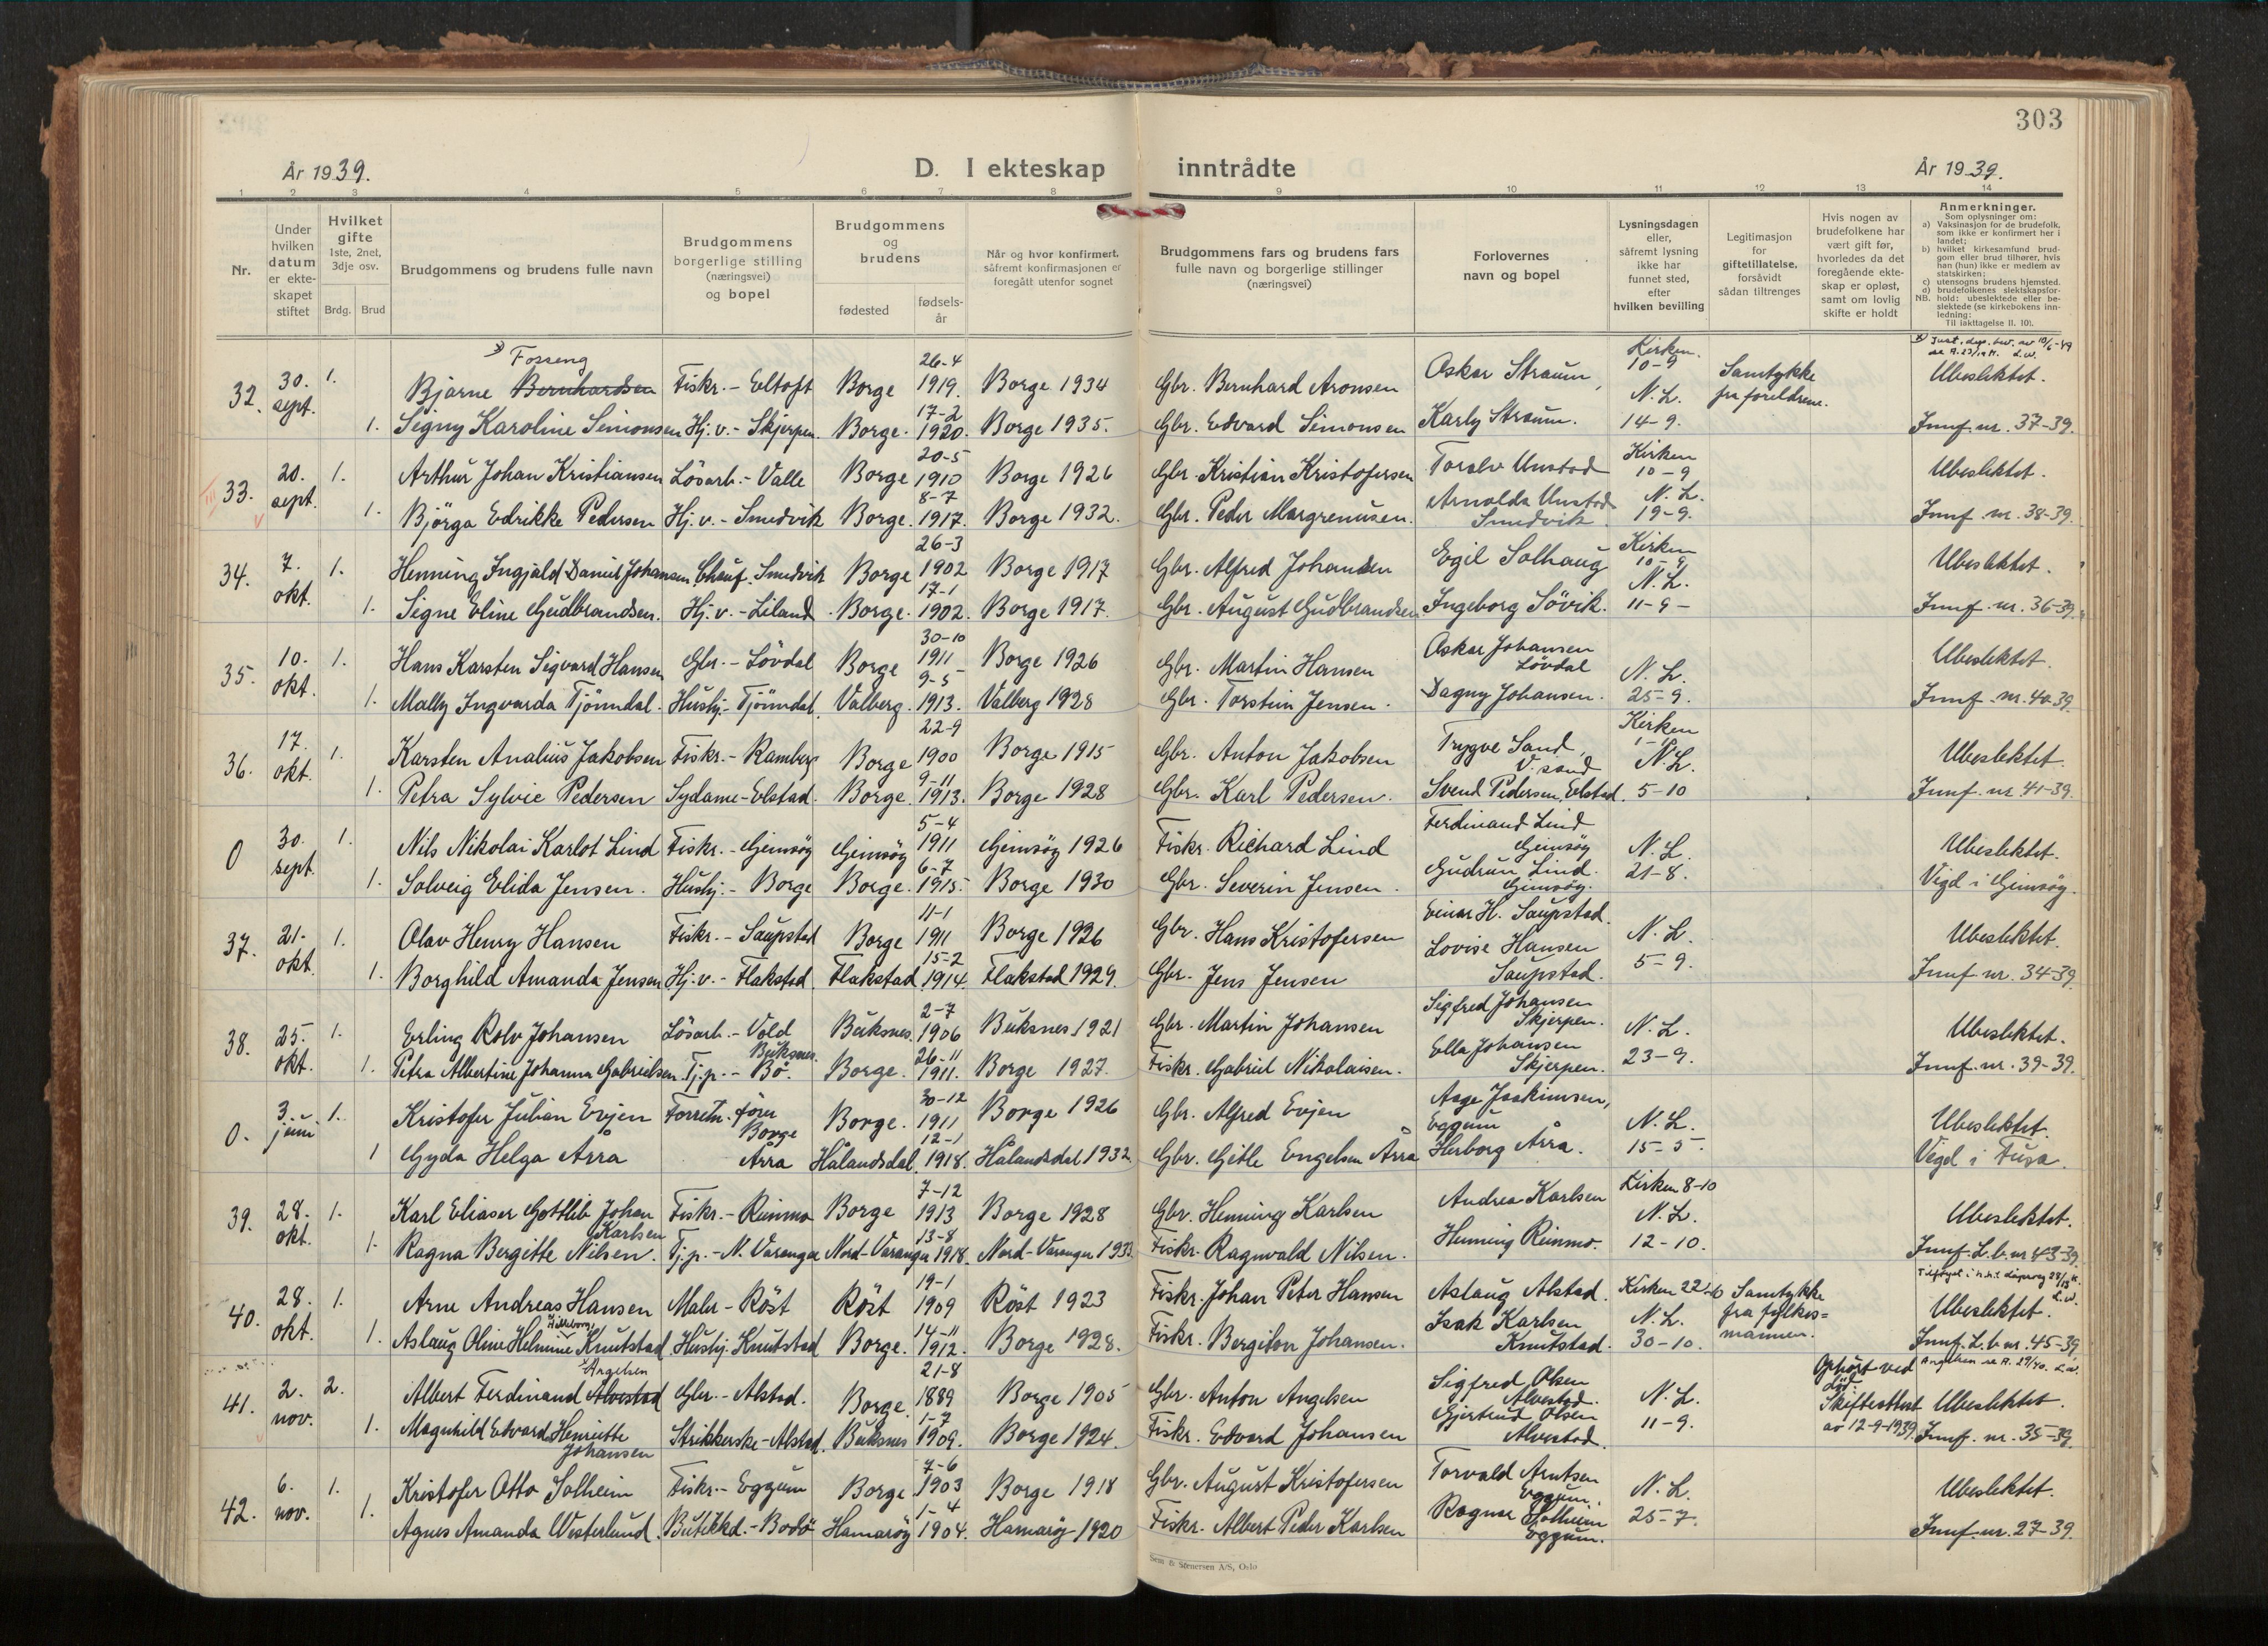 303
År 1939.
D. I ekteskap inntrådte
År 1939.
1 2 3 4 5 6 7 8 9 10 11 12 13 14
Nr.
Under hvilken datum er ekte-skapet stiftet
Hvilket gifte 1ste, 2net, 3dje osv.
Brdg. Brud
Brudgommens og brudens fulle navn
Brudgommens borgerlige stilling (næringsvei) og bopel
Brudgommens og brudens
fødested
fødsels-år
Når og hvor konfirmert, såfremt konfirmasjonen er foregått utenfor sognet
Brudgommens fars og brudens fars fulle navn og borgerlige stillinger (næringsvei)
Forlovernes navn og bopel
Lysningsdagen eller, såfremt lysning ikke har funnet sted, efter hvilken bevilling
Legitimasjon for giftetillatelse, forsåvidt sådan tiltrenges
Hvis nogen av brudefolkene har vært gift før, hvorledes da det foregående ekte-skap er opløst, samt om lovlig skifte er holdt
Anmerkninger.
Som oplysninger om:
a) Vaksinasjon for de brudefolk, som ikke er konfirmert her i landet;
b) hvilket kirkesamfund brud-gom eller brud tilhører, hvis han (hun) ikke er medlem av statskirken;
c) utensogns brudens hjemsted.
d) brudefolkenes slektskapsfor-hold: ubeslektede eller be-slektede (se kirkebokens inn-ledning:
NB.
Til iakttagelse II. 10).
32. 30. sept. 1. Bjarne Bernhardsen Fosseng Fiskr. - Eltoft Borge 26-4 1919. Borge 1934 Gbr. Bernhard Aronsen Oskar Straum, Kirken. 10-9 Samtykke fra foreldrene. Ubeslektet.
1. Signy Karoline Simonsen Hj.v. - Skjerpen. Borge. 17-2 1920. Borge 1935. Gbr. Edvard Simonsen Karly Straum. N.L. 14-9. Innf. nr. 37-39.
33. 20. sept. 1. Arthur Johan Kristiansen Lösarb. - Valle Borge 20-5 1910 Borge 1926 Gbr. Kristian Kristofersen Toralv Unstad Kirken 10-9 Ubeslektet.
1. Björga Edrikke Pedersen Hj.v. - Smedvik Borge. 8-7 1917. Borge 1932. Gbr. Peder Margrenusen. Arnolda Unstad Smedvik N.L. 19-9. Innf. nr. 38-39.
34. 7. okt. 1. Henning Ingjald Daniel Johansen Chauf. Smedvik Borge 26-3 1902 Borge 1917 Gbr. Alfred Johansen Egil Solhaug Kirken 10-9 Ubeslektet.
1. Signe Eline Gudbrandsen. Hj.v. - Liland Borge. 17-1 1902. Borge 1917. Gbr. August Gudbrandsen Ingeborg Sövik. N.L. 11-9- Innf. nr. 36-39.
35. 10. okt. 1. Hans Karsten Sigvard Hansen Gbr. - Lövdal Borge 30-10 1911 Borge 1926 Gbr. Martin Hansen Oskar Johansen Lövdal N.L. Ubeslektet.
1. Mally Ingvarda Tjönndal. Hushj. - Tjönndal. Valberg. 9-5 1913. Valberg 1928 Gbr. Torstein Jensen. Dagny Johansen. 25-9. Innf. nr. 40-39.
36. 17. okt. 1. Karsten Analius Jakobsen Fiskr. - Ramberg Borge 22-9 1900 Borge 1915 Gbr. Anton Jakobsen Trygve Sand, V. sand Kirken N.L. Ubeslektet.
1. Petra Sylvie Pedersen Sydame - Elstad. Borge. 9-11 1913. Borge 1928 Gbr. Karl Pedersen. Svend Pedersen, Elstad. 5-10 Innf. nr. 41-39.
0 30. sept. 1. Nils Nikolai Karlot Lind Fiskr. - Gimsöy Gimsöy 5-4 1911 Gimsöy 1926 Fiskr. Richard Lind Ferdinand Lind Gimsöy N.L. Ubeslektet.
1. Solveig Elida Jensen. Hushj. - Borge Borge. 6-7 1915. Borge 1930 Gbr. Severin Jensen. Gudrun Lind. Gimsöy. 21-8. Vigd i Gimsöy.
37. 21. okt. 1. Olav Henry Hansen Fiskr. - Saupstad Borge 11-1 1911 Borge 1926 Gbr. Hans Kristofersen Einar H. Saupstad. N.L. Ubeslektet.
1. Borghild Amanda Jensen Hj.v. - Flakstad. Flakstad 15-2 1914. Flakstad 1929. Gbr. Jens Jensen Lovise Hansen Saupstad. 5-9. Innf. nr. 34-39.
38. 25. okt. 1. Erling Rolv Johansen Lösarb. - Vold Buksnes. Buksnes. 2-7 1906 Buksnes 1921 Gbr. Martin Johansen Sigfred Johansen Skjerpen. N.L. Ubeslektet.
1. Petra Albertine Johanna Gabrielsen. Tj.p. - Bö. Borge. 26-11 1911. Borge 1927. Fiskr. Gabriel Nikolaisen. Ella Johansen Skjerpen. 23-9. Innf. nr. 39-39.
0. 3. juni 1. Kristofer Julian Evjen Forretn. förer Borge Borge. 30-12 1911 Borge 1926 Gbr. Alfred Evjen Aage Joakimsen, Eggum N.L. Ubeslektet.
1 Gyda Helga Årra Årra Hålandsdal. 12-1 1918. Hålandsdal 1932. Gbr. Gitle Engelsen Årra Herborg Årra. 15-5. Vigd i Fusa.
39. 28. okt. 1. Karl Eliaser Gottlib Johan Karlsen Fiskr. - Reinmo Borge 7-12 1913 Borge 1928 Gbr. Henning Karlsen Andrea Karlsen Kirken 8-10 N.L. Ubeslektet.
1. Ragna Bergitte Nilsen. Tj.p. - N. Varanger Nord-Varanger 13-8 1918. Nord-Varanger 1933. Fiskr. Ragnvald Nilsen. Henning Reinmo. 12-10. Innf. L.b. nr 43-39.
40. 28. okt. 1. Arne Andreas Hansen Maler - Röst Röst 19-1 1909 Röst 1923 Fiskr. Johan Peter Hansen Aslaug Alstad. Kirken 22-10 Samtykke fra fylkes=mannen. Ubeslektet.
1. Aslaug Oline Helmine Knutstad Hushj. Knutstad Borge. 14-11 1912. Borge 1928. Fiskr. Bergiton Johansen. Isak Karlsen Knutstad. N.L. 30-10. Innf. L.b. nr. 45-39.
41. 2. nov. 2. Albert Ferdinand Alvestad Angelsen Gbr. - Alstad. Borge. 21-8 1889 Borge 1905 Gbr. Anton Angelsen Sigfred Olsen Alvestad. N.L. Ophört ved död. Skifteattest av 12-9-1939. Angelsen se A. 29/40. Ubeslektet.
1. Magnhild Edvard Henriette Johansen Strikkerske - Alstad. Buksnes 1-7 1909. Borge 1924. Fiskr. Edvard Johansen Gjertrud Olsen Alvestad. 11-9. Innf. nr. 35-39.
42. 6. nov. 1. Kristofer Otto Solheim Fiskr. - Eggum Borge 7-6 1903 Borge 1918 Gbr. August Kristofersen Torvald Arntsen Eggum. N.L. Ubeslektet.
1. Agnes Amanda Westerlund. Butikkd. - Bodö Hamaröy 1-4 1904. Hamaröy 1920 Fiskr. Albert Peder Karlsen Ragnar Solheim Eggum. 25-7. Innf. nr. 27-39.
Sem & Stenersen A/S, Oslo